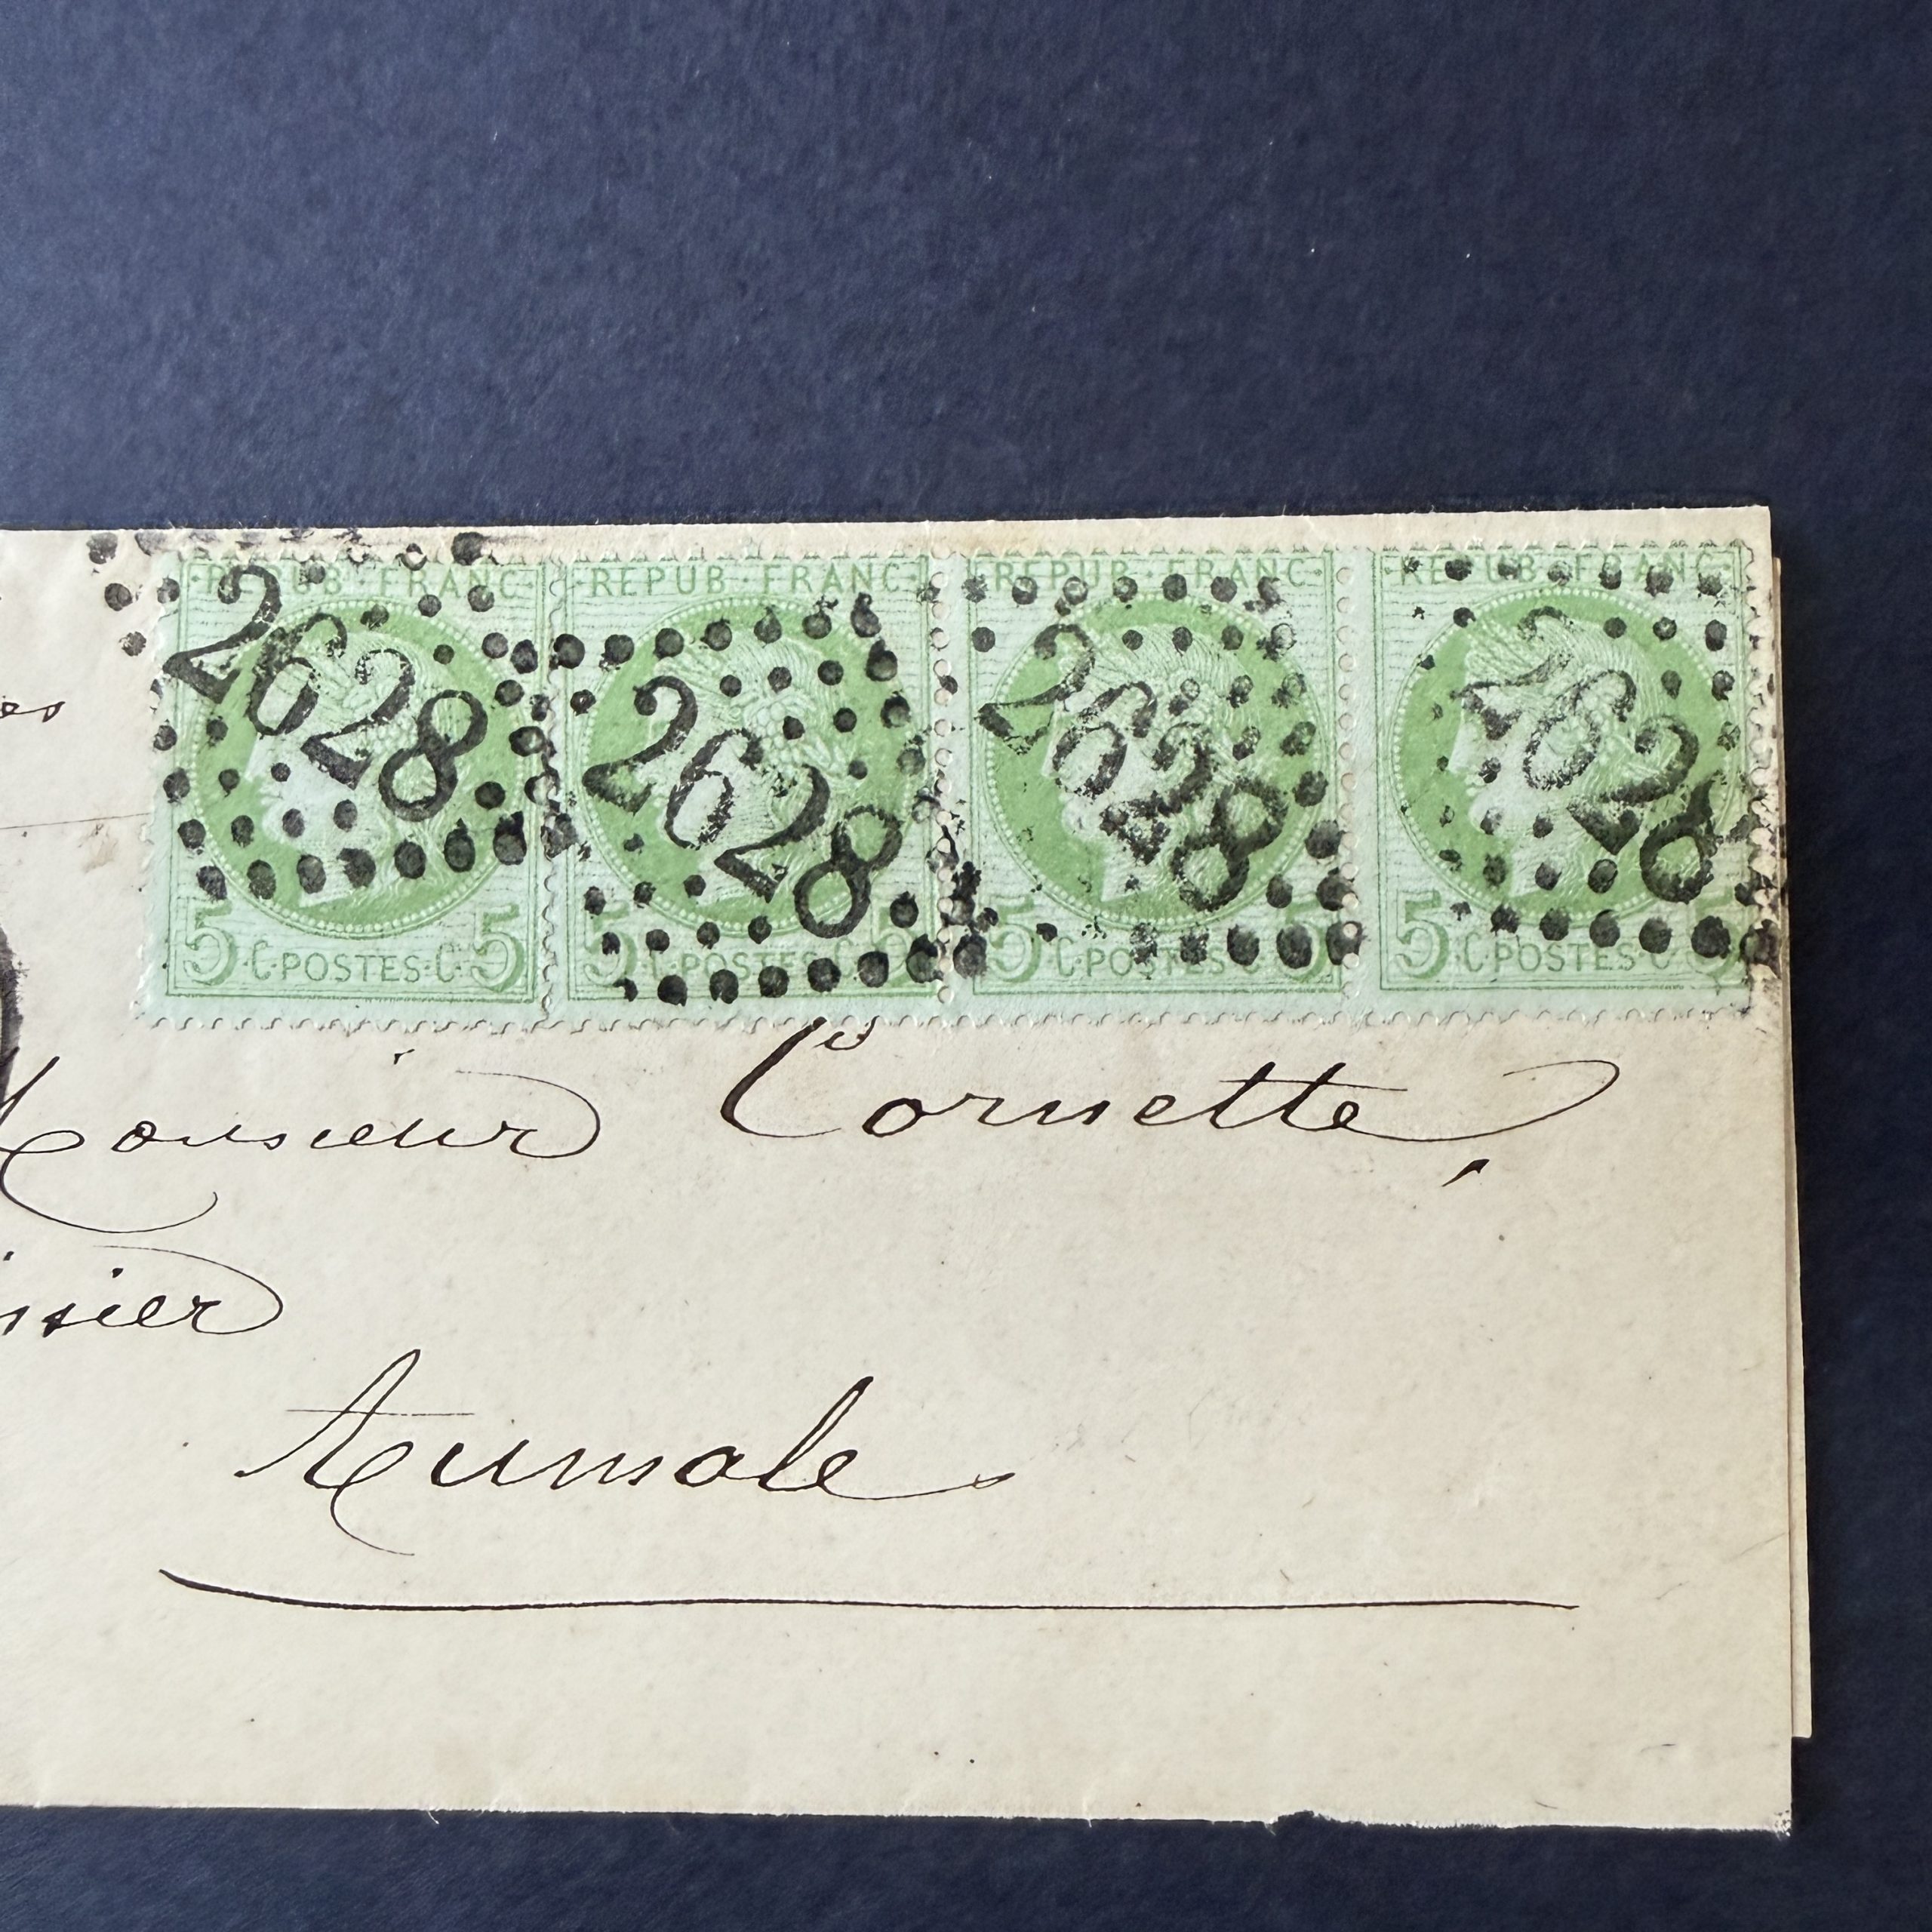 REPUB · FRANC · REPUB · FRANC · REPUB · FRANC · REPUB · FRANC
2628 2628 2628 2628
5 · C · POSTES · C · 5 5 · C · POSTES · C · 5 5 · C · POSTES · C · 5 5 · C · POSTES · C · 5
Monsieur Cornette,
Aumale